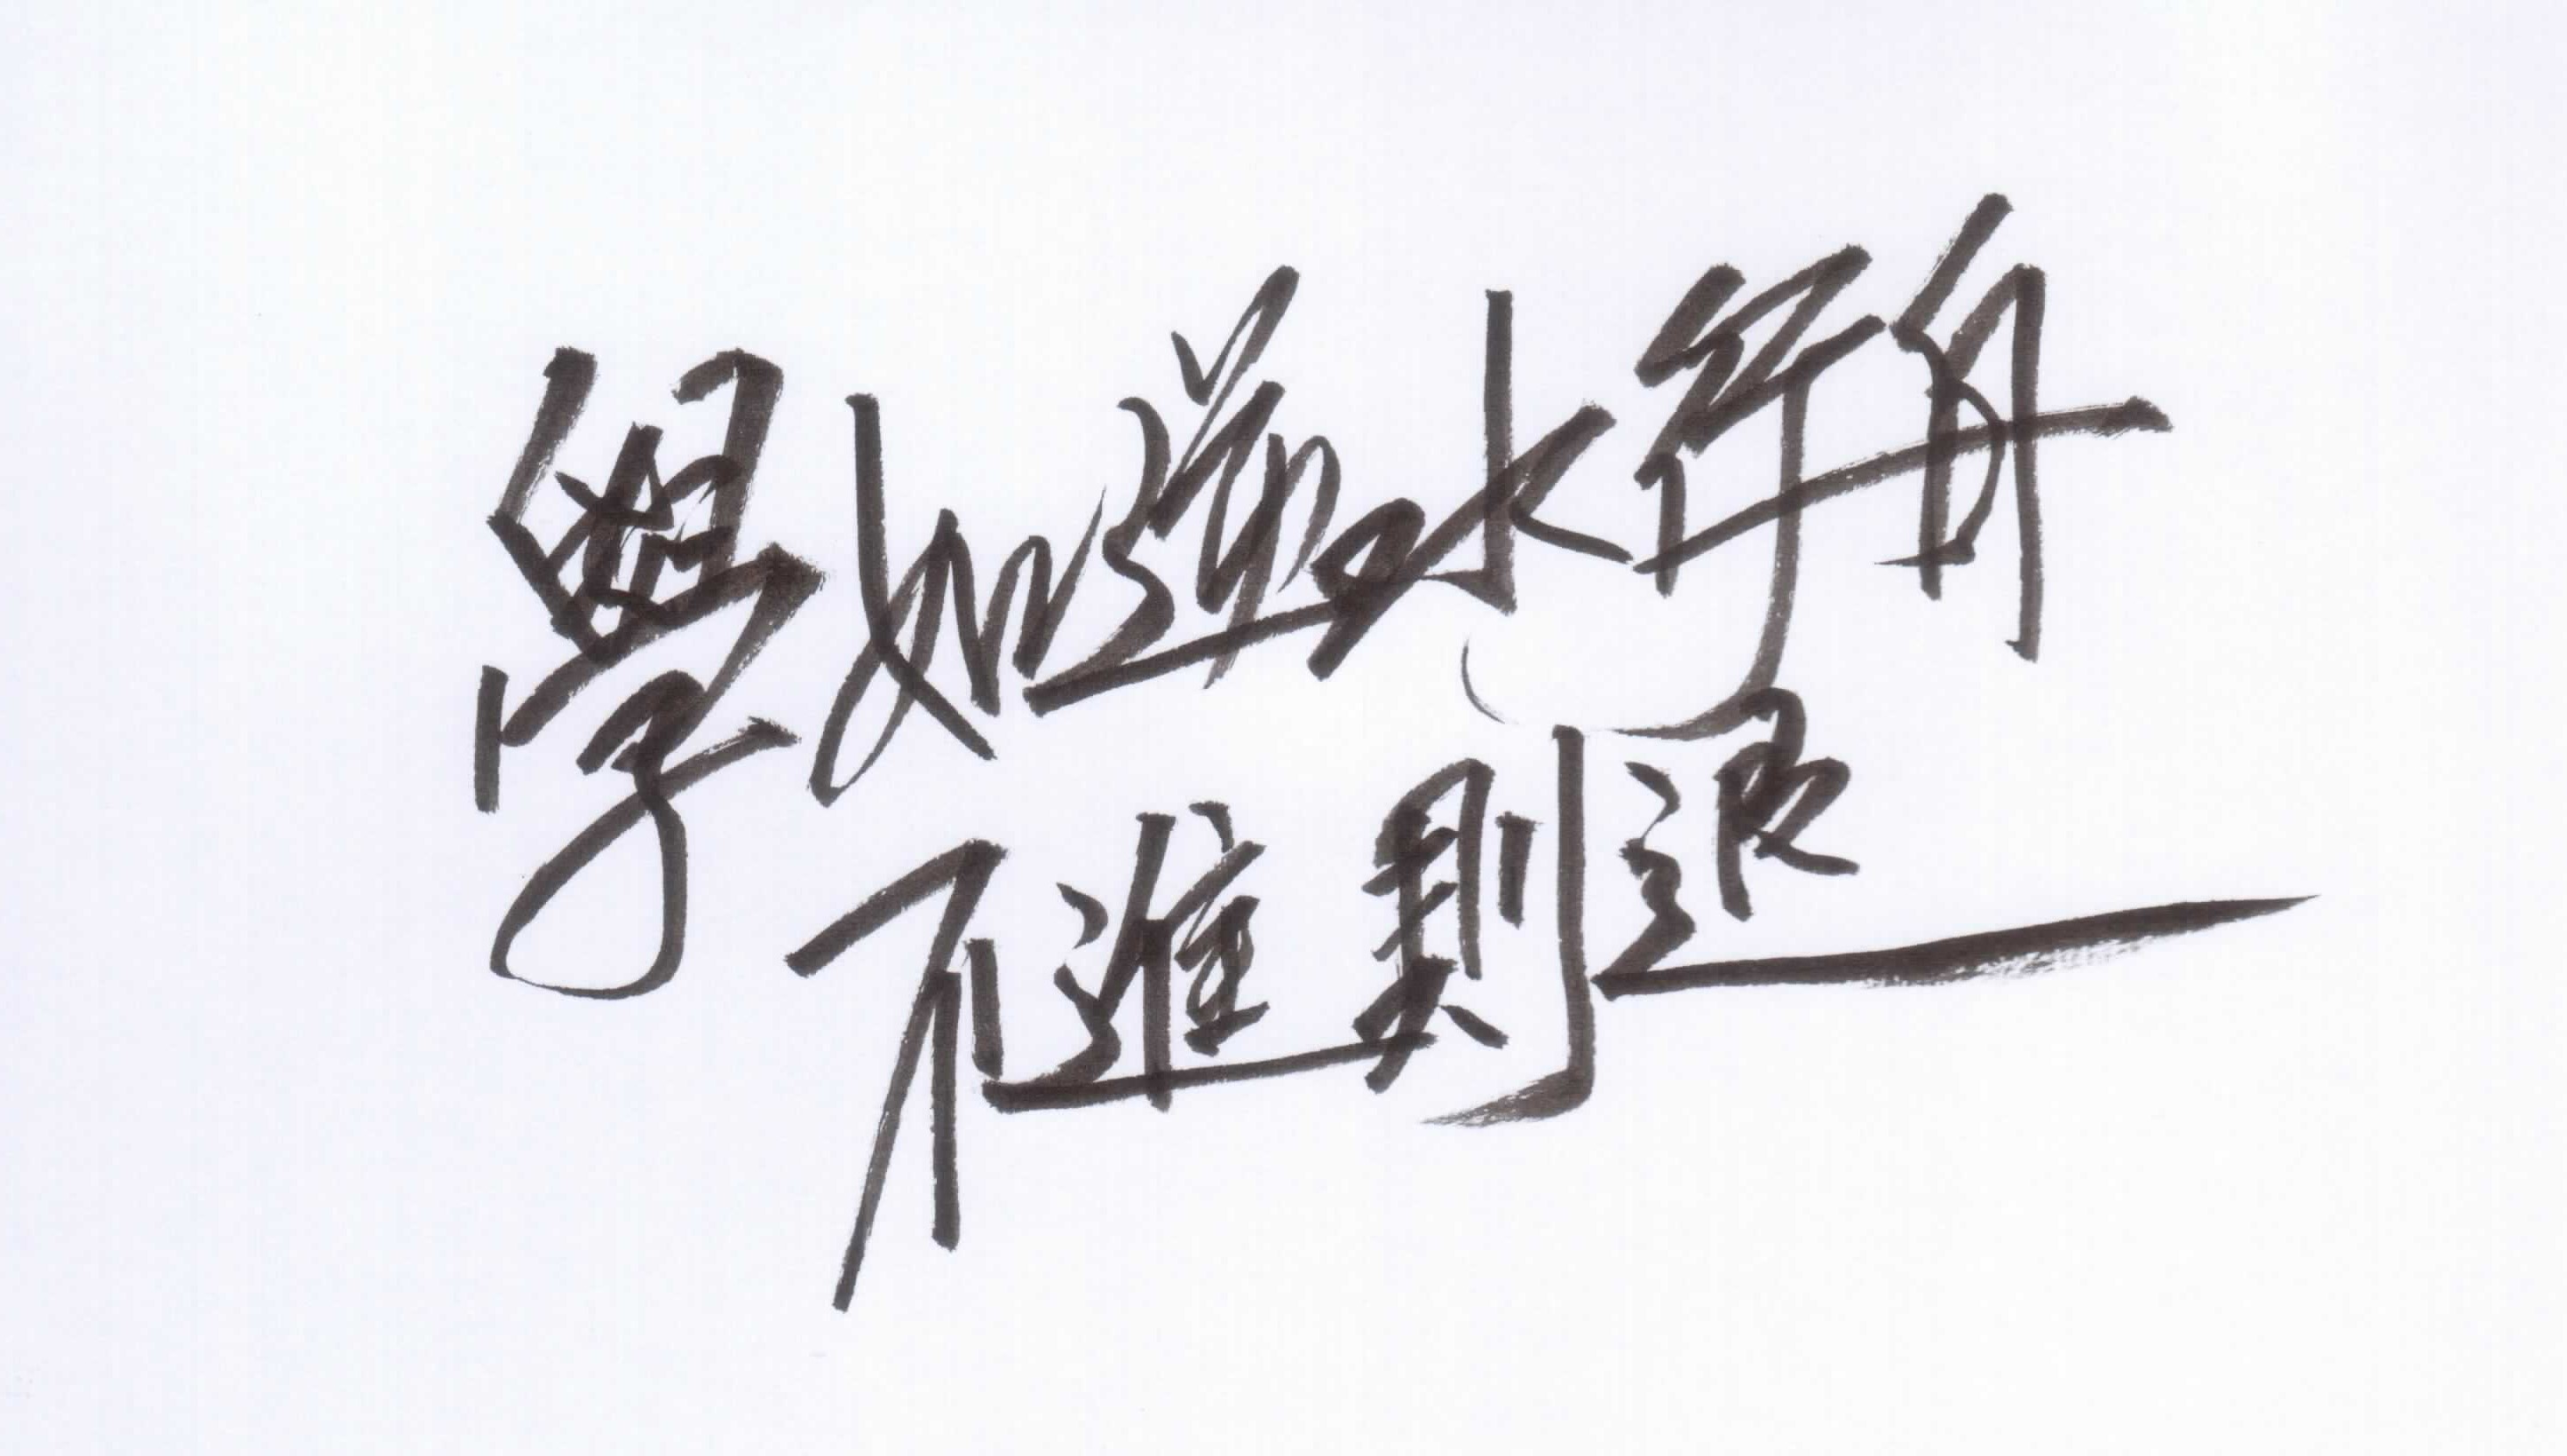 學如逆水行舟
不進則退